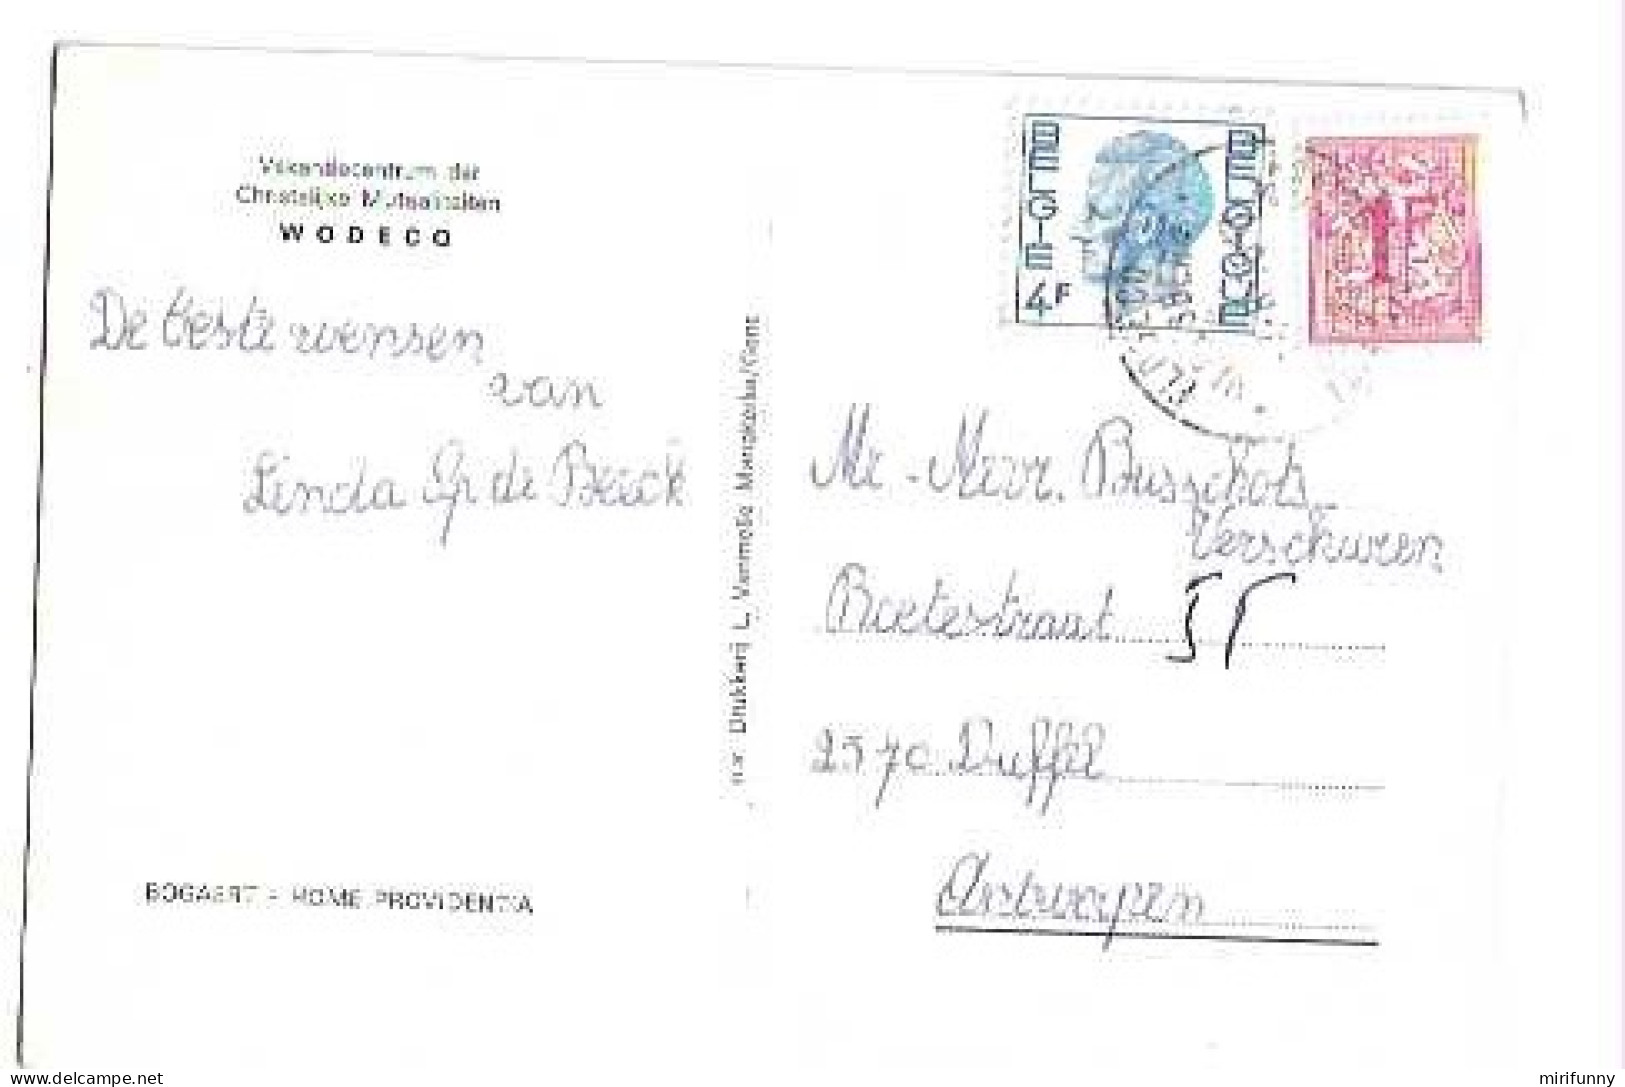 Vakantiecentrum der
Christelijke Mutualiteiten
WODECQ
De beste wensen
van
Linda Op de Beeck
BOGAERT - HOME PROVIDENTIA
Drukkerij L. Vanmelle Mariakerke/Gent
BELGIE
BELGIQUE
4F
1F
Mr - Mevr. Busschots
Verschuren
Roetestraat 55
2570 Duffel
Antwerpen
www.delcampe.net
mirifunny